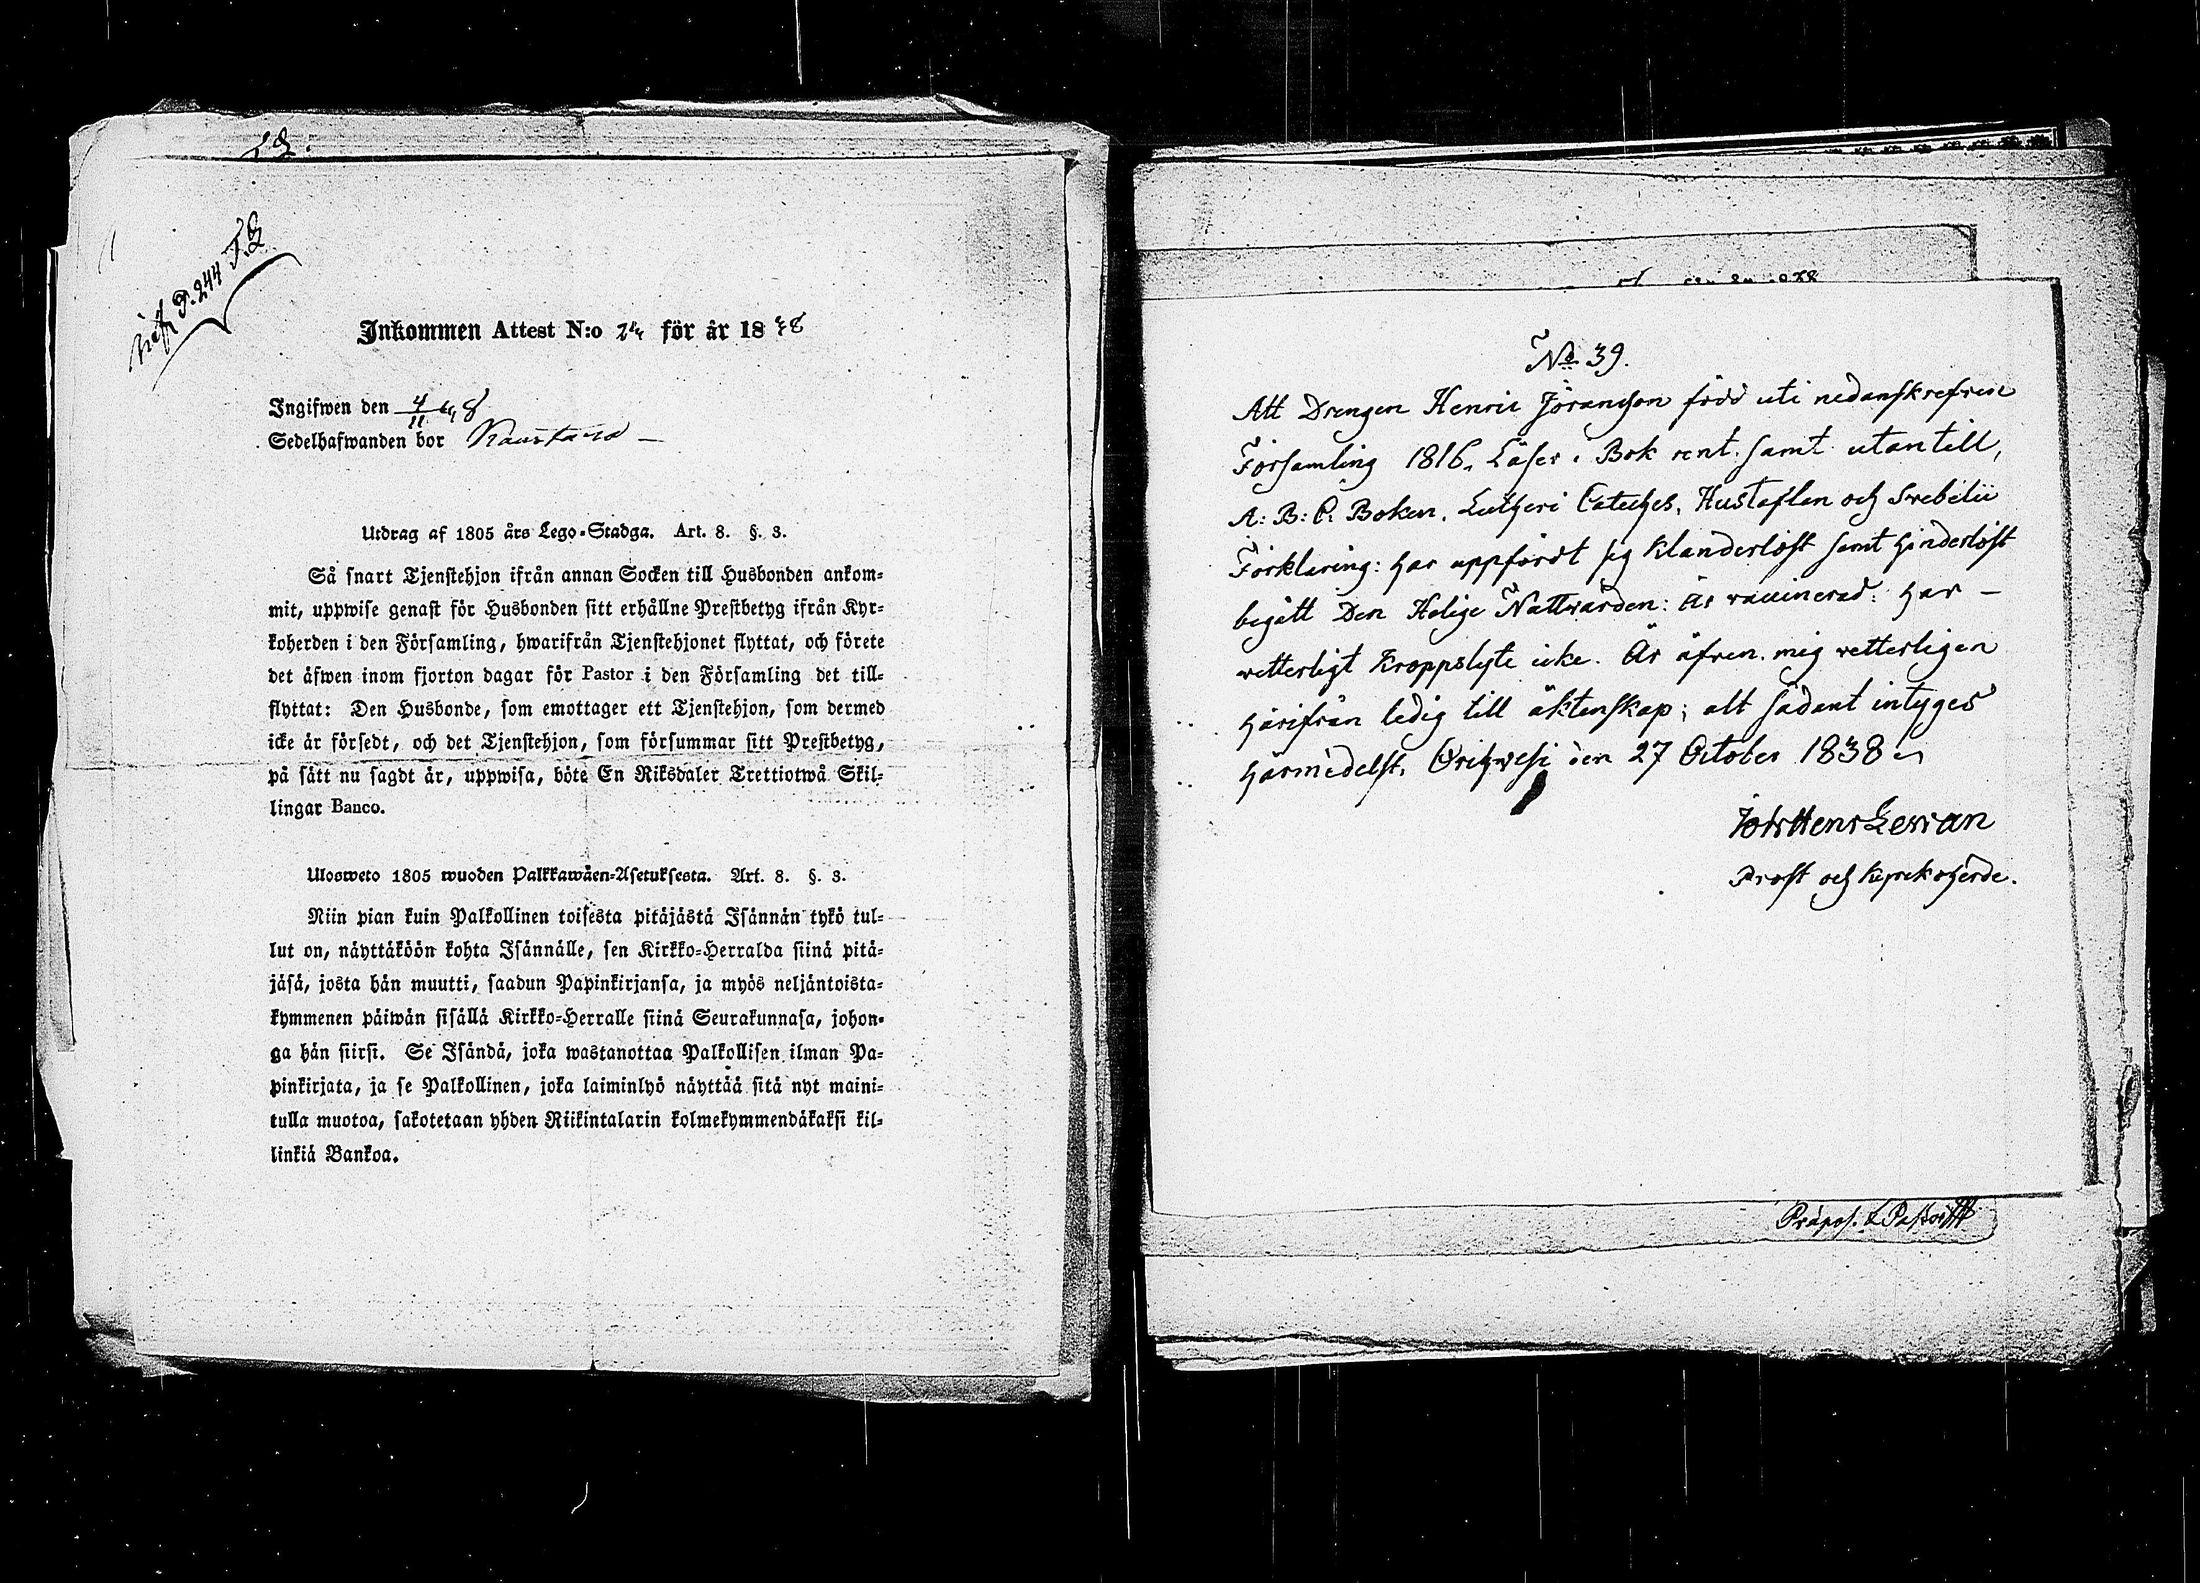 18.
P. 244 T.B.
Inkommen Attest N:o för år 1848
Ingifwen den 4/11 48
Sedelhafwanden bor
Utdrag af 1805 års Lego-Stadga. Art. 8. §. 3.
Så snart Tjenstehjon ifrån annan Socken till Husbonden ankom-
mit, uppwise genast för Husbonden sitt erhållne Prestbetyg ifrån Kyr-
koherden i den Församling, hwarifrån Tjenstehjonet flyttat, och förete
det äfwen inom fjorton dagar för Pastor i den Församling det till-
flyttat: Den Husbonde, som emottager ett Tjenstehjon, som dermed
icke är försedt, och det Tjenstehjon, som försummar sitt Prestbetyg,
på sätt nu sagdt är, uppwisa, böte En Riksdaler Trettiotwå Skil-
lingar Banco.
Ulosweto 1805 wuoden Palkkawäen-Asetuksesta. Art. 8. §. 3.
Niin pian kuin Palkollinen toisesta pitäjästä Isännän tykö tul-
lut on, näyttäköön kohta Isännälle, sen Kirkko-Herralda siinä pitä-
jäsä, josta hän muutti, saadun Papinkirjansa, ja myös neljäntoista-
kymmenen päiwän sisällä Kirkko-Herralle siinä Seurakunnasa, johon-
ga hän siirsi. Se Isändä, joka wastanottaa Palkollisen ilman Pa-
pinkirjata, ja se Palkollinen, joka laiminlyö näyttää sitä nyt maini-
tulla muotoa, sakotetaan yhden Riikintalarin kolmekymmendäkaksi kil-
linkiä Bankoa.
No 39.
Att Drengen Henric Jöransson född uti nedanskrefvene
Församling 1816. Läser i Bok rent samt utantill,
A: B: C: Boken. Lutheri Cateches, Hustaflan och Svebelii
Förklaring: har uppfördt sig klanderlöst samt hinderlöst
begått Den Helige Nattvarden: Är vaccinerad: har –
vetterligt Kroppslyte icke. Är äfven mig vetterligen
härifrån ledig till äktenskap; att sådant intyges
härmedelst. Orihvesi den 27 October 1838
Prost och Kyrckoherde.
Præpos. & Pastor